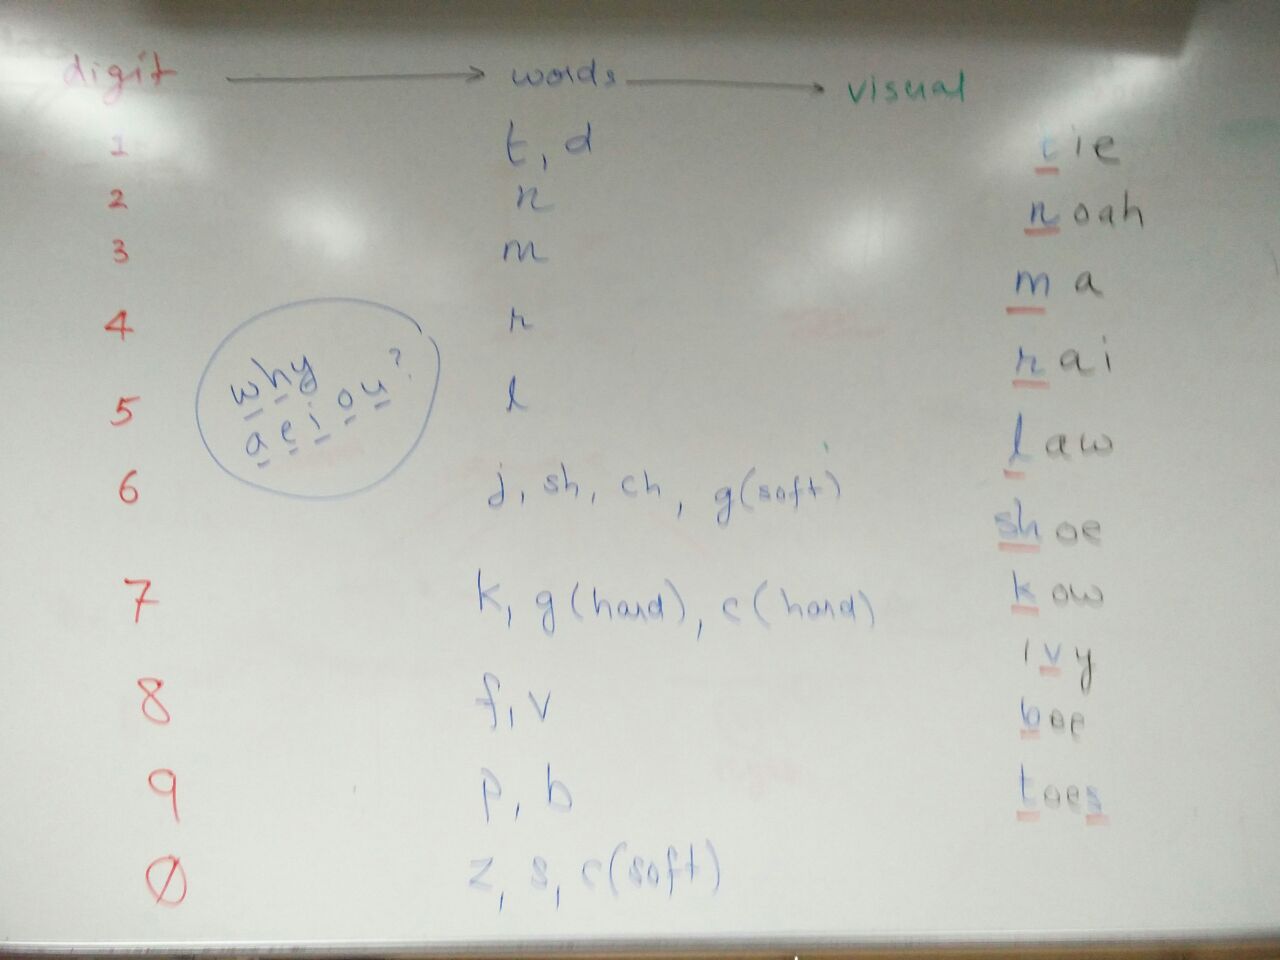 digit → words → visual
1 t, d tie
2 n noah
3 m ma
4 r rai
why
aeiou?
5 l law
6 j, sh, ch, g(soft) shoe
7 k, g(hard), c(hard) kow
8 f, v ivy
9 p, b bee
0 z, s, c(soft) toes